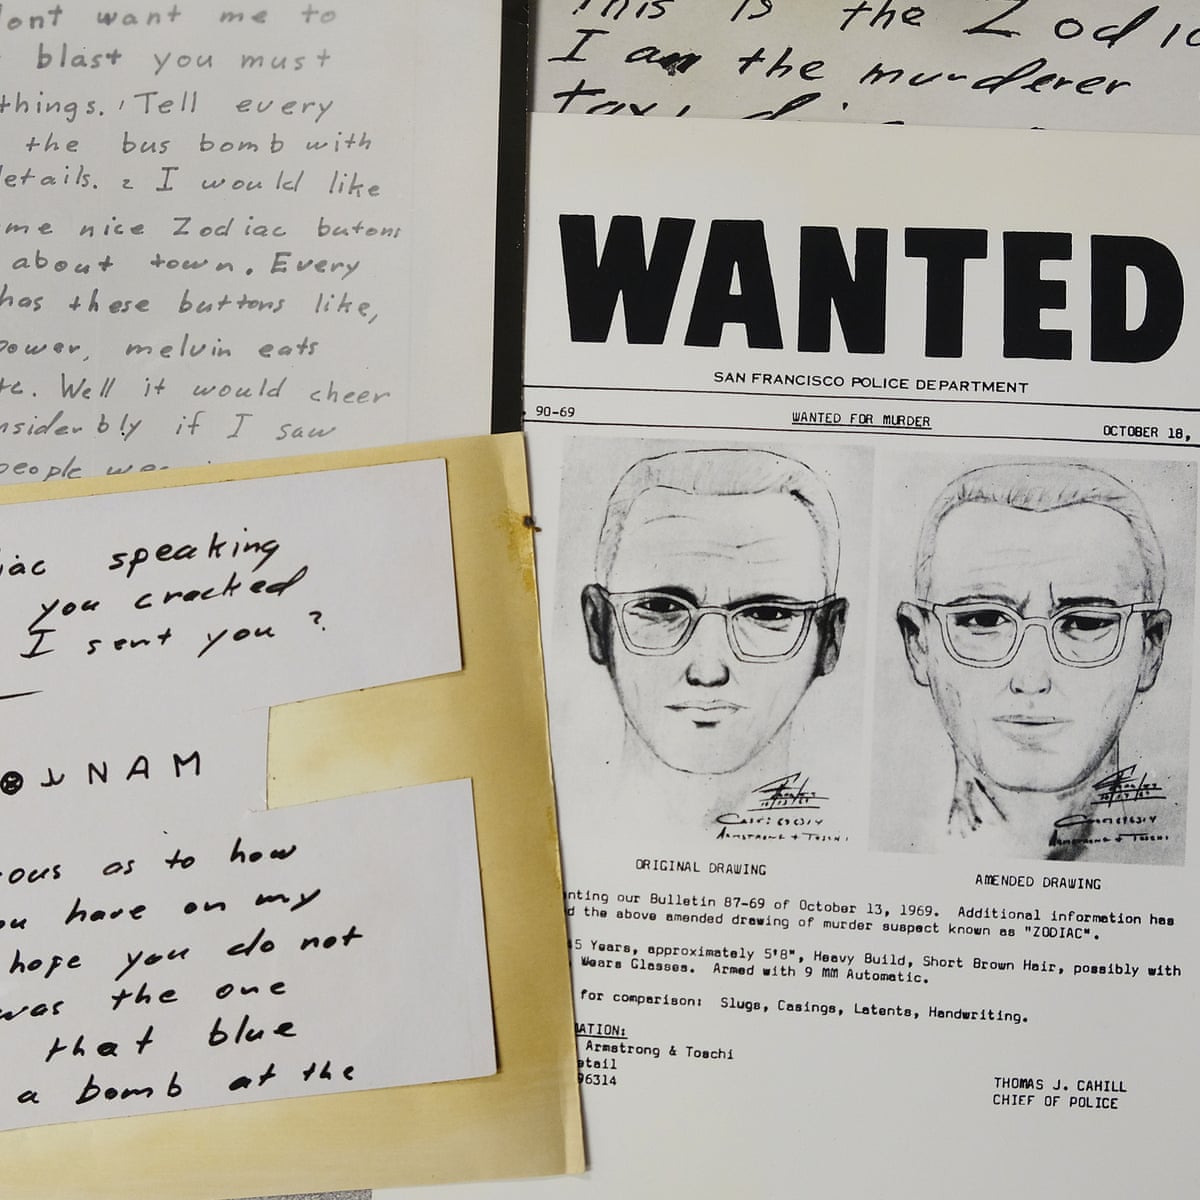 dont want me to
blast you must
things. 1 Tell every
the bus bomb with
details. 2 I would like
me nice Zodiac butons
about town. Every
has these buttons like,
power, melvin eats
etc. Well it would cheer
considerbly if I saw
people
This is the Zodiac
I am the murderer
taxi
WANTED
SAN FRANCISCO POLICE DEPARTMENT
90-69 WANTED FOR MURDER OCTOBER 18,
ORIGINAL DRAWING AMENDED DRAWING
nting our Bulletin 87-69 of October 13, 1969. Additional information has
d the above amended drawing of murder suspect known as "ZODIAC".
5 Years, approximately 5'8", Heavy Build, Short Brown Hair, possibly with
Wears Glasses. Armed with 9 MM Automatic.
for comparison: Slugs, Casings, Latents, Handwriting.
ATION:
Armstrong & Toschi
etail
96314
THOMAS J. CAHILL
CHIEF OF POLICE
iac speaking
you cracked
I sent you ?
NAM
ous as to how
ou have on my
hope you do not
was the one
that blue
a bomb at the